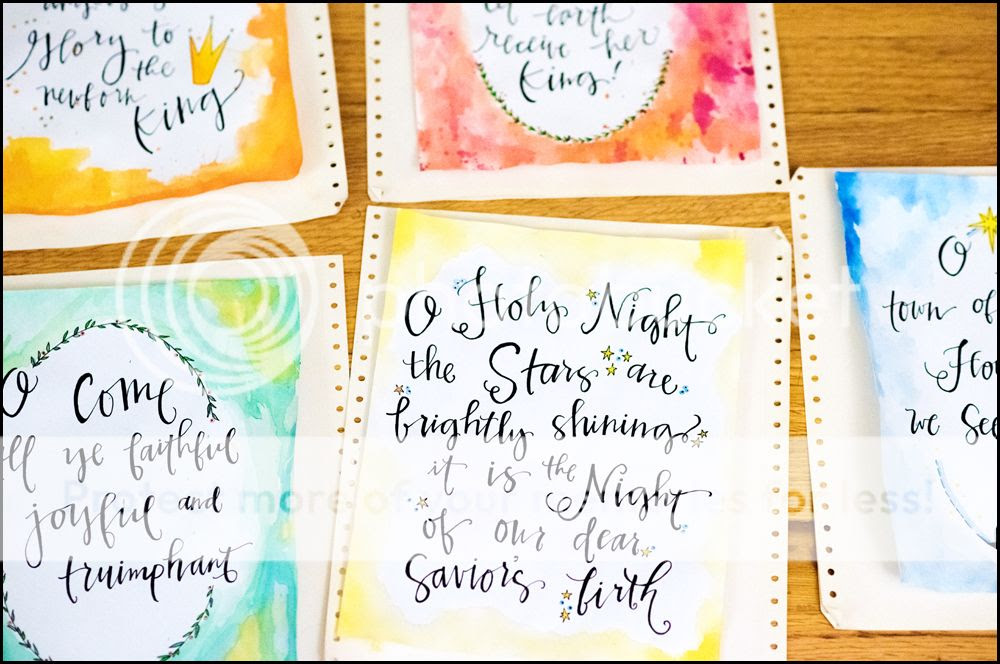 Glory to
the
newborn
King
earth
receive her
King!
O Come
ye faithful
joyful and
truimphant
O Holy Night
the Stars are
brightly shining
it is the Night
of our dear
Savior's birth
O
town of
we See
photobucket
Protect more of your memories for less!